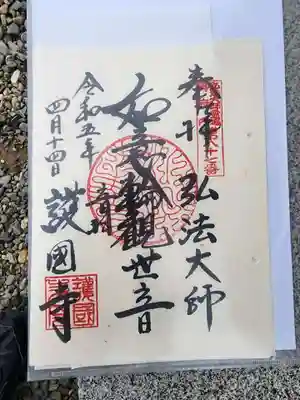 奉拝
弘法大師
如意輪観世音
章月
令和五年
四月十四日
護國寺